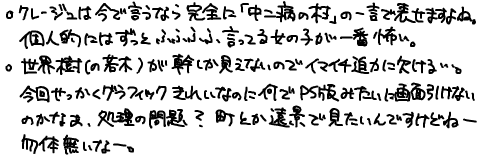 。クレージュは今で言うなら完全に「中二病の村」の一言で表せますよね。
個人的にはずっと、ふふふふ、言ってる女の子が一番怖い。
。世界樹(の若木)が幹しか見えないのでイマイチ迫力に欠けるい。
今回せっかくグラフィックきれいなのに何でPS版みたいに画面引けない
のかなぁ、処理の問題？町とか遠景で見たいんですけどねー
勿体無いなー。